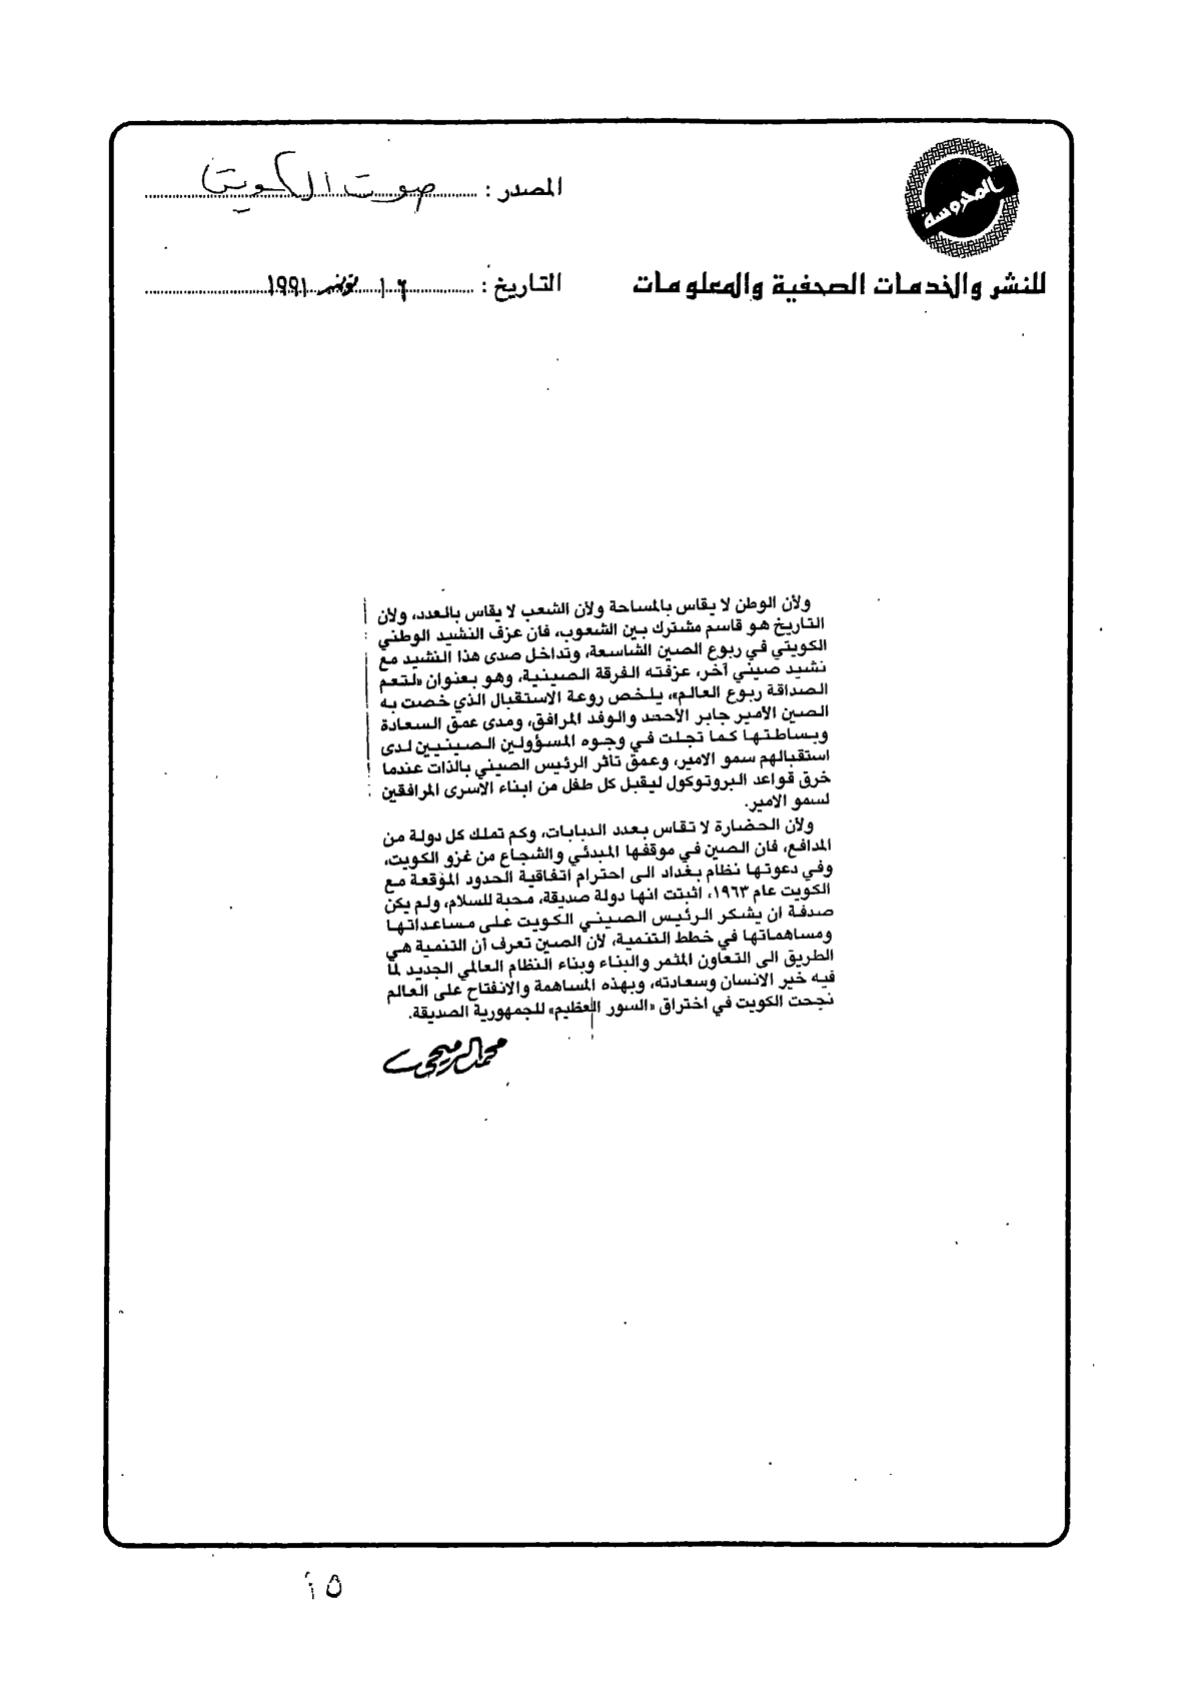 المحروسة
للنشر والخدمات الصحفية والمعلومات
المصدر : صوت الكويت
التاريخ : ١٦ نوفمبر ١٩٩١
ولأن الوطن لا يقاس بالمساحة ولأن الشعب لا يقاس بالعدد، ولأن
التاريخ هو قاسم مشترك بين الشعوب، فان عزف النشيد الوطني
الكويتي في ربوع الصين الشاسعة، وتداخل صدى هذا النشيد مع
نشيد صيني آخر، عزفته الفرقة الصينية، وهو بعنوان «لتعم
الصداقة ربوع العالم»، يلخص روعة الاستقبال الذي خصت به
الصين الامير جابر الأحمد والوفد المرافق، ومدى عمق السعادة
وبساطتها كما تجلت في وجوه المسؤولين الصينيين لدى
استقبالهم سمو الامير، وعمق تاثر الرئيس الصيني بالذات عندما
خرق قواعد البروتوكول ليقبل كل طفل من ابناء الأسرى المرافقين
لسمو الامير.
ولأن الحضارة لا تقاس بعدد الدبابات، وكم تملك كل دولة من
المدافع، فان الصين في موقفها المبدئي والشجاع من غزو الكويت،
وفي دعوتها نظام بغداد الى احترام اتفاقية الحدود المؤقعة مع
الكويت عام ١٩٦٣، اثبتت انها دولة صديقة، محبة للسلام، ولم يكن
صدفة ان يشكر الرئيس الصيني الكويت على مساعداتها
ومساهماتها في خطط التنمية، لأن الصين تعرف أن التنمية هي
الطريق الى التعاون المثمر والبناء وبناء النظام العالمي الجديد لما
فيه خير الانسان وسعادته، وبهذه المساهمة والانفتاح على العالم
نجحت الكويت في اختراق «السور العظيم» للجمهورية الصديقة.
محمد الرميحي
١٥